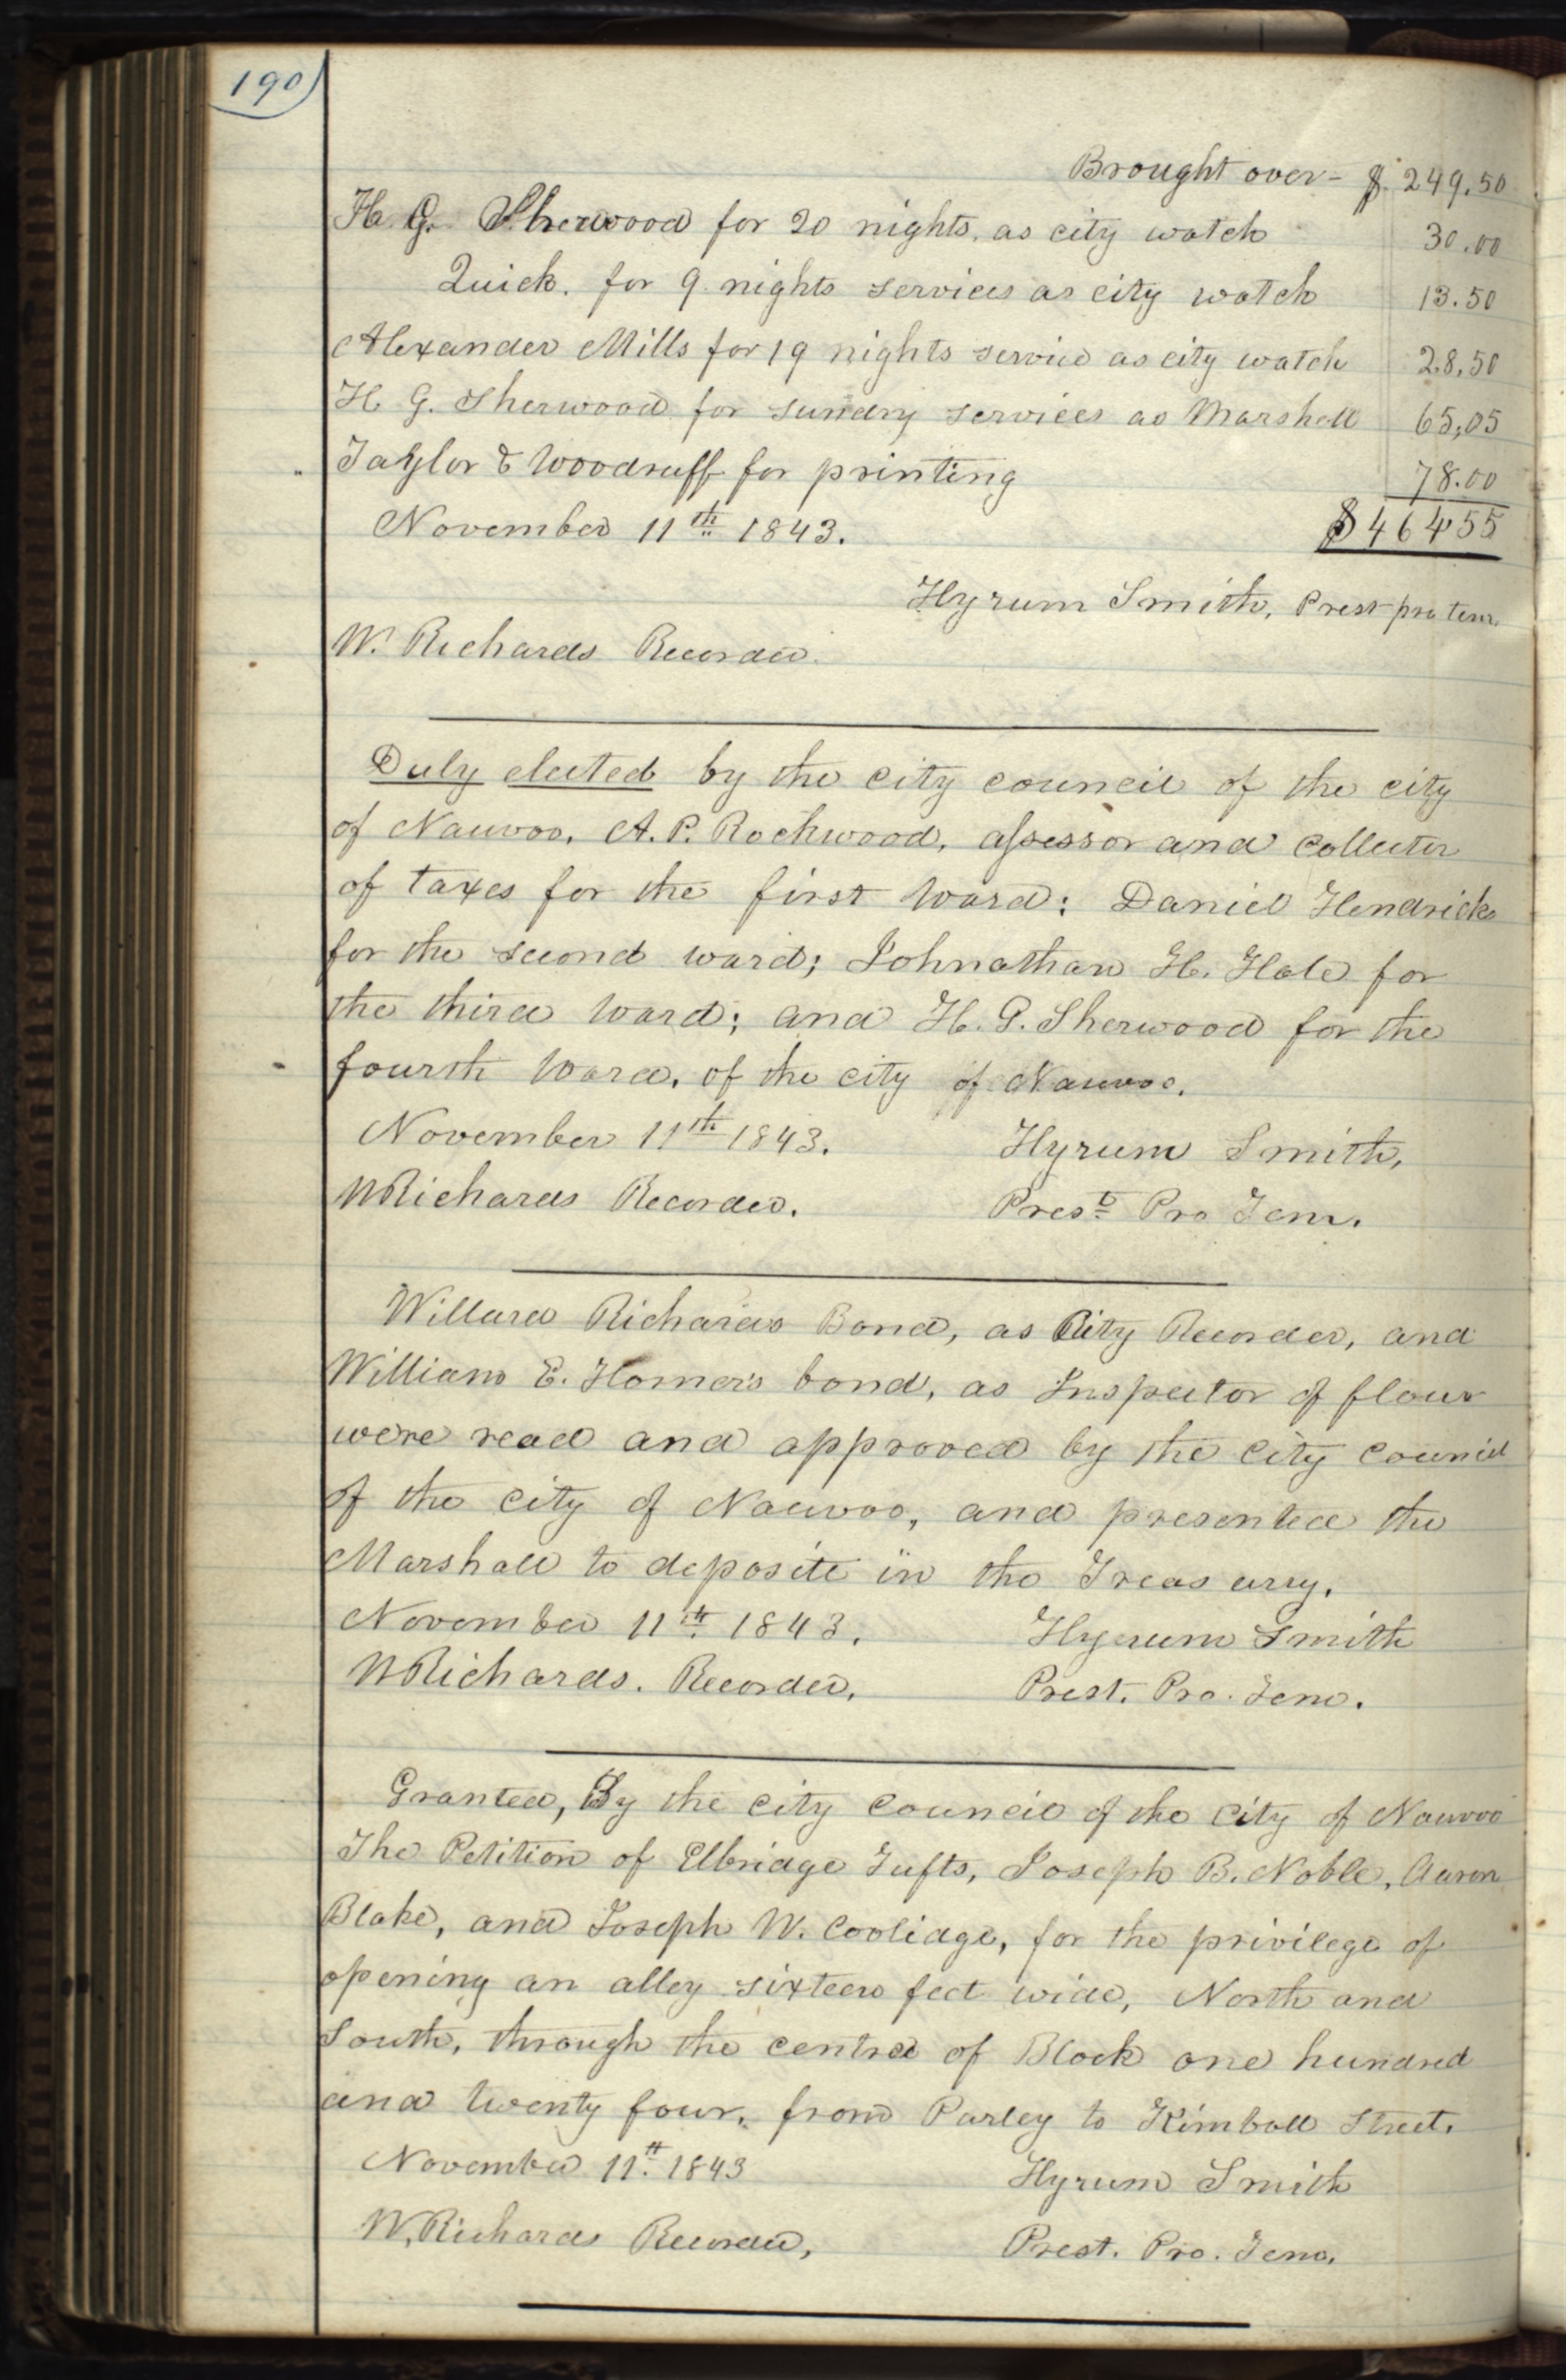 190
Brought over - $ 249.50
H. G. Sherwood for 20 nights, as city watch 30.00
Quick. for 9 nights services as city watch 13.50
Alexander Mills for 19 nights service as city watch 28,50
H. G. Sherwood for sundry services as Marshall 65,05
Taylor & Woodruff for printing 78.00
November 11th 1843. $46455
Hyrum Smith, Prest pro tem.
W. Richards Recorder.
Duly elected by the city council of the city
of Nauvoo, A. P. Rockwood, assessor and collector
of taxes for the first Ward: Daniel Hendricks
for the second ward; Johnathan H. Hale for
the third Ward; and H. G. Sherwood for the
fourth Ward, of the city of Nauvoo.
November 11th 1843. Hyrum Smith,
W Richards Recorder. Prest Pro Tem.
Willard Richards Bond, as City Recorder, and
William E. Horner's bond, as Inspector of flour
were read and approved by the city council
of the city of Nauvoo, and presented the
Marshall to deposite in the Treasury.
November 11th 1843. Hyrum Smith
W Richards. Recorder, Prest. Pro. Tem.
Granted, By the city council of the city of Nauvoo
The Petition of Elbridge Tufts, Joseph B. Noble, Aaron
Blake, and Joseph W. Coolidge, for the privilege of
opening an alley sixteen feet wide, North and
South, through the centre of Block one hundred
and twenty four, from Parley to Kimball Street.
November 11th 1843 Hyrum Smith
W, Richards Recorder, Prest. Pro. Tem.